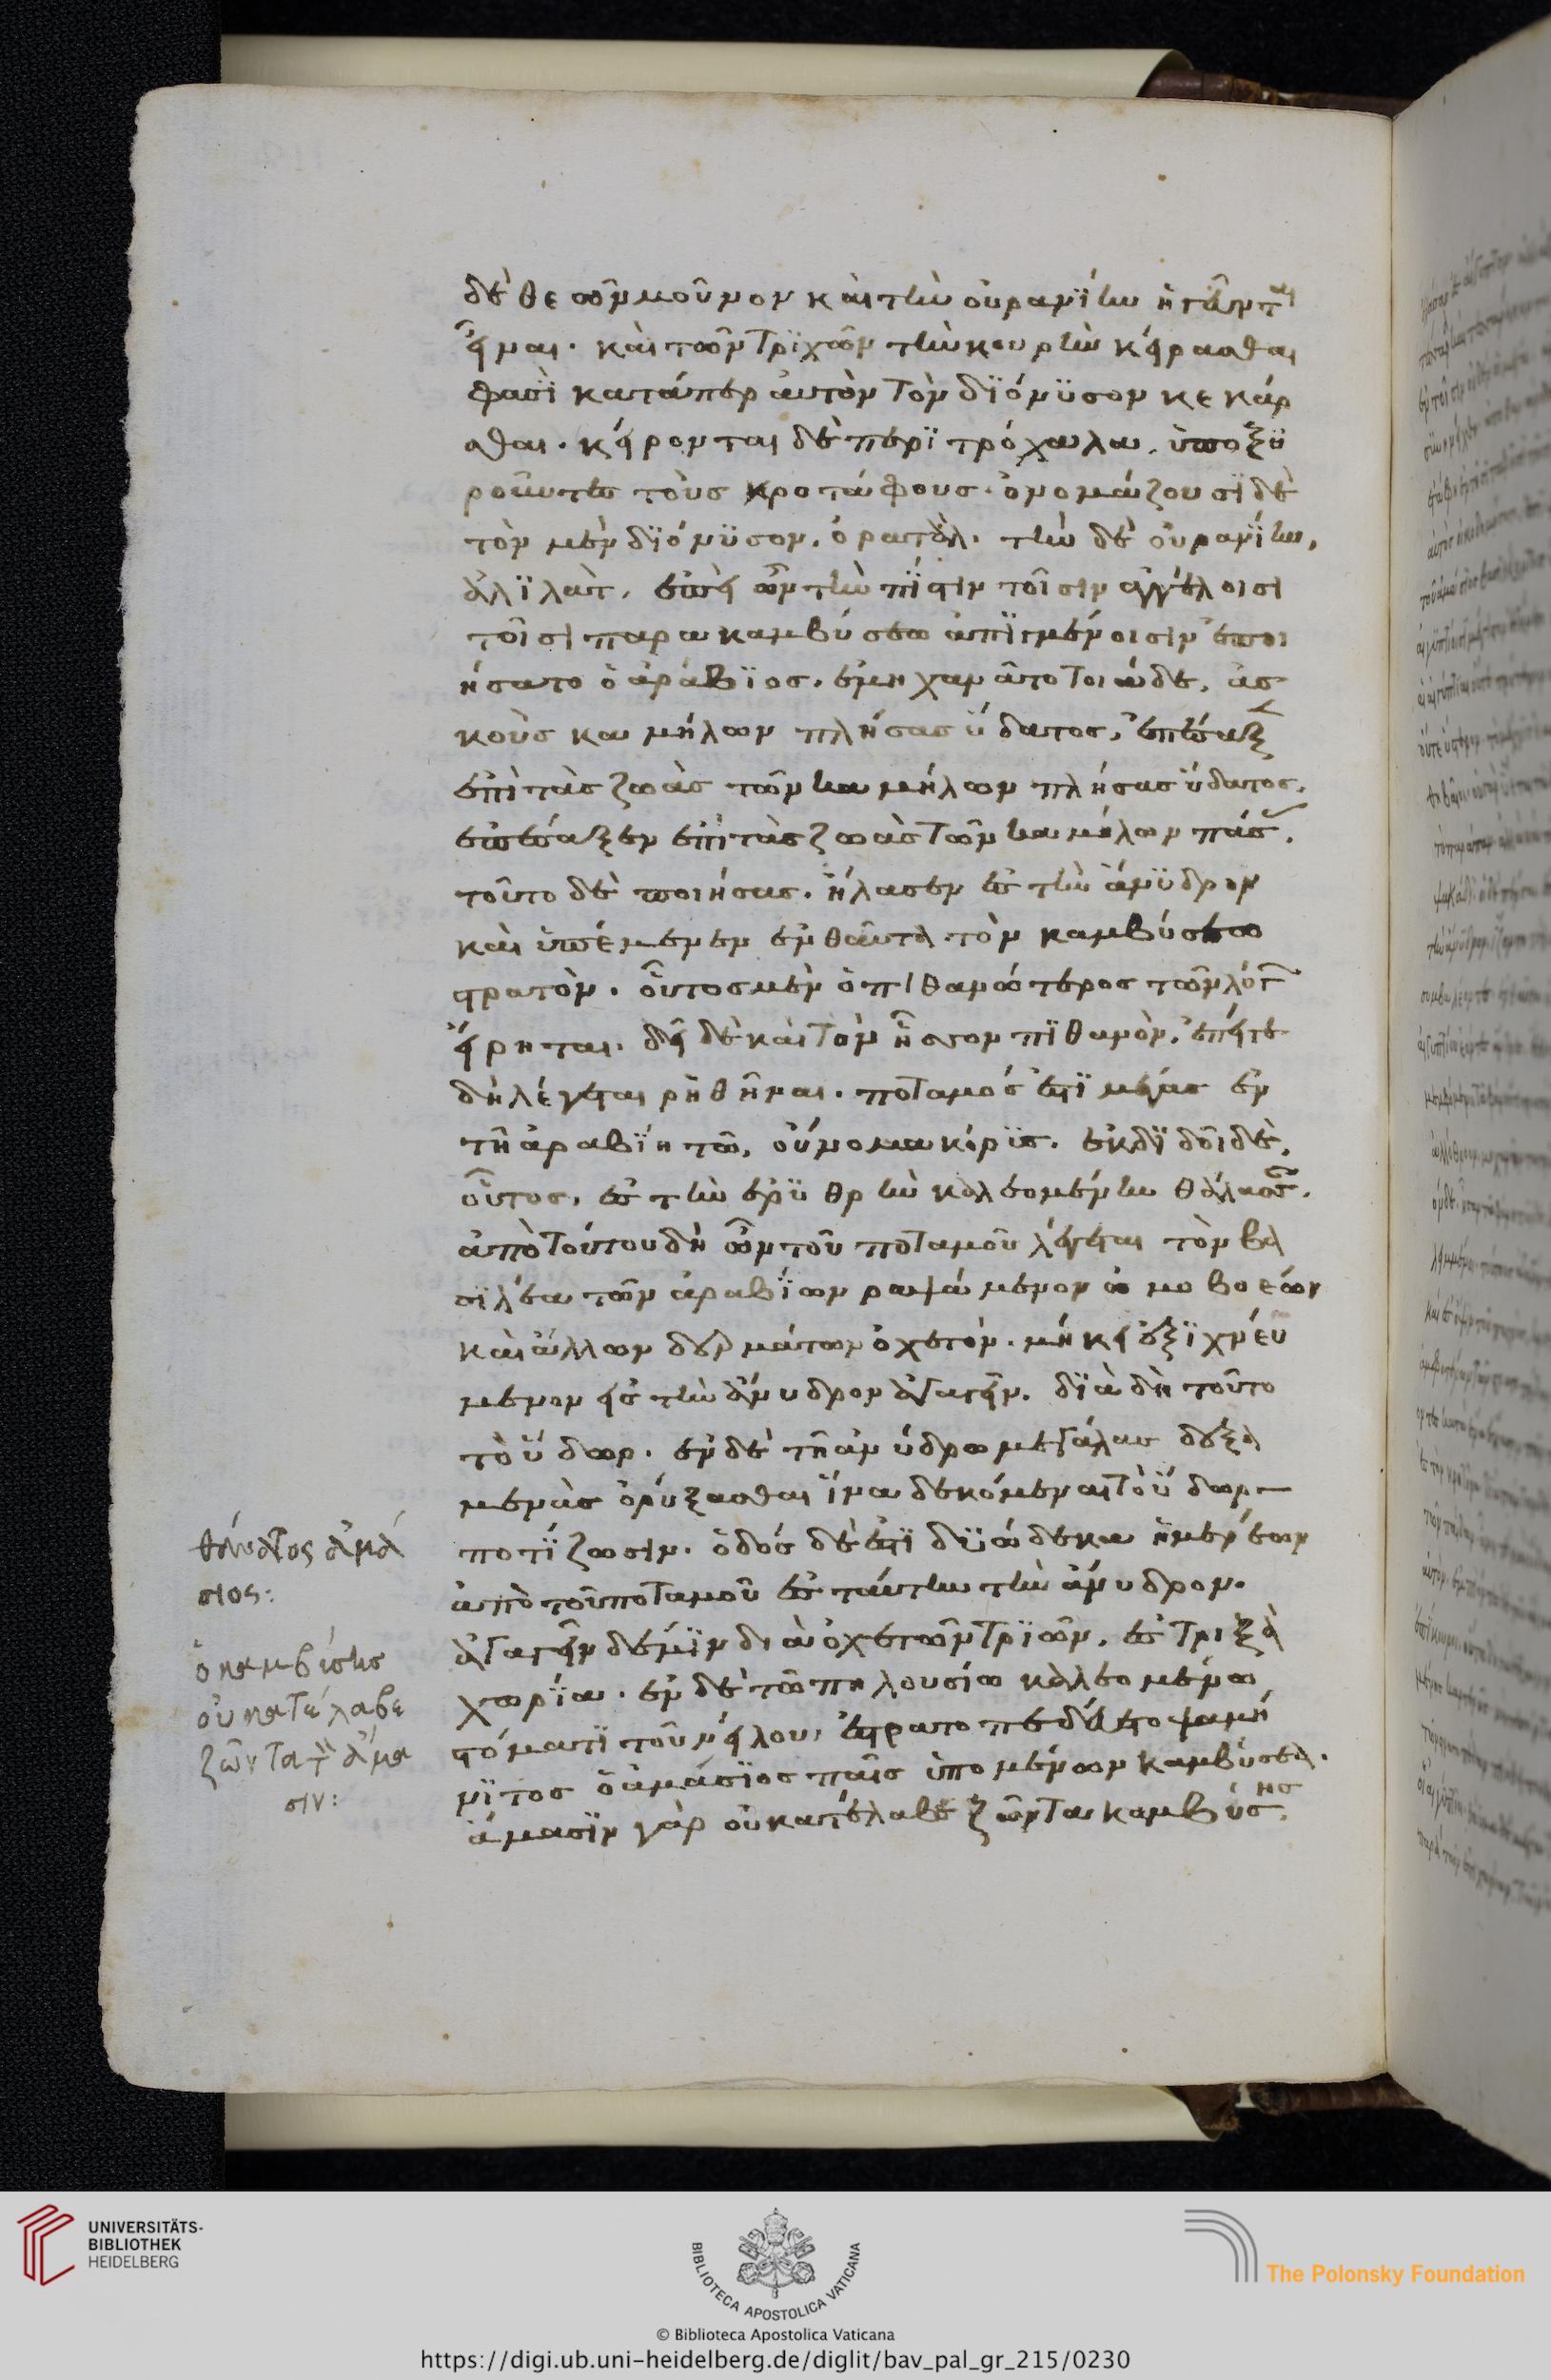 δὲ θεῶν μοῦνον καὶ τὴν οὐρανΐην ἡγέων τ
εἶναι. καὶ τῶν τρϊχῶν τὴν κουρὴν κείρασθαι
φασῒ κατάπερ αὐτὸν τὸν δϊόνϋσον κεκάρ
θαι. κείρονται δὲ περϊτρόχαλα, ὑποξϋ
ροῦντες τοὺς κροτάφους. ὀνομάζουσϊ δὲ
τὸν μὲν δϊόνϋσον, ὀρατὰλ. τὴν δὲ οὐρανΐην,
ἀλϊλὰτ. ἐπεὶ ὦν τὴν πΐστιν τοῖσιν ἀγγέλοισι
τοῖσι παρα καμβύσεω ἀπϊγμένοισιν ἐποι
ήσατο ὁ ἀράβϊος. ἐμηχανᾶτο τοιάδε. ἀσ
κοὺς καμήλων πλήσας ὕδατος, ἐπέσαξ
ἐπὶ τὰς ζωὰς τῶν καμήλων πλήσας ὕδατος.
ἐπέσαξεν ἐπὶ τὰς ζωὰς τῶν καμήλων πάσ.
τοῦτο δὲ ποιήσας. ἤλασεν ἐς τὴν ἄνϋδρον
καὶ ὑπέμενεν ἐνθαῦτα τὸν καμβύσεω
στρατὸν. οὗτος μὲν ὁ πιθανώτερος τῶν λόγ
εἴρηται. δεῖ δὲ καὶ τὸν ἧσσον πϊθανὸν, ἐπεί γε
δὴ λέγεται ῥηθῆναι. ποταμός ἐστϊ μέγας ἐν
τῆ ἀραβΐη τῶ, οὔνομα κόρϋς. ἐκδϊδοῖ δὲ,
οὗτος, ἐς τὴν ἐρϋθρὴν καλεομένην θάλασσ.
ἀπὸ τούτου δὴ ὦν τοῦ ποταμοῦ λέγεται τὸν βα
σϊλέα τῶν ἀραβΐων ραψάμενον ὠμοβοέων
καὶ ἄλλων δερμάτων ὀχετόν. μήκει ἐξϊκνεύ
μενον ἐς τὴν ἄνυδρον ἀγαγεῖν. δϊὰ δὴ τοῦτο
τὸ ὕδωρ. ἐν δὲ τῆ ἀνύδρω μεγάλας δεξα
μενὰς ὀρύξασθαι ἵνα δεκόμεναι τὸ ὕδωρ
ποτΐζωσιν. ὁδός δὲ ἐστϊ δϋώδεκα ἡμερέων
ἀπὸ τοῦ ποταμοῦ ἐς ταύτην τὴν ἄνυδρον.
ἀγαγεῖν δέ μϊν δι ὀχετῶν τρϊῶν, ἐς τριξὰ
χωρΐα. ἐν δὲ τῶ πηλουσίω καλεομένω
στόματϊ τοῦ νείλου, ἐστρατοπεδεύετο ψαμή
νϊτος ὁ ἀμάσϊος παῖς ὑπομένων καμβύσεα.
ἄμασϊν γὰρ οὐ κατέλαβε ζῶντα καμβύσης.
θάνατος ἀμά
σιος:
ὁ καμβύσης
οὐ κατέλαβε
ζῶντα τ ἄμα
σιν:
UNIVERSITÄTS-
BIBLIOTHEK
HEIDELBERG
BIBLIOTECA APOSTOLICA VATICANA
The Polonsky Foundation
© Biblioteca Apostolica Vaticana
https://digi.ub.uni-heidelberg.de/diglit/bav_pal_gr_215/0230